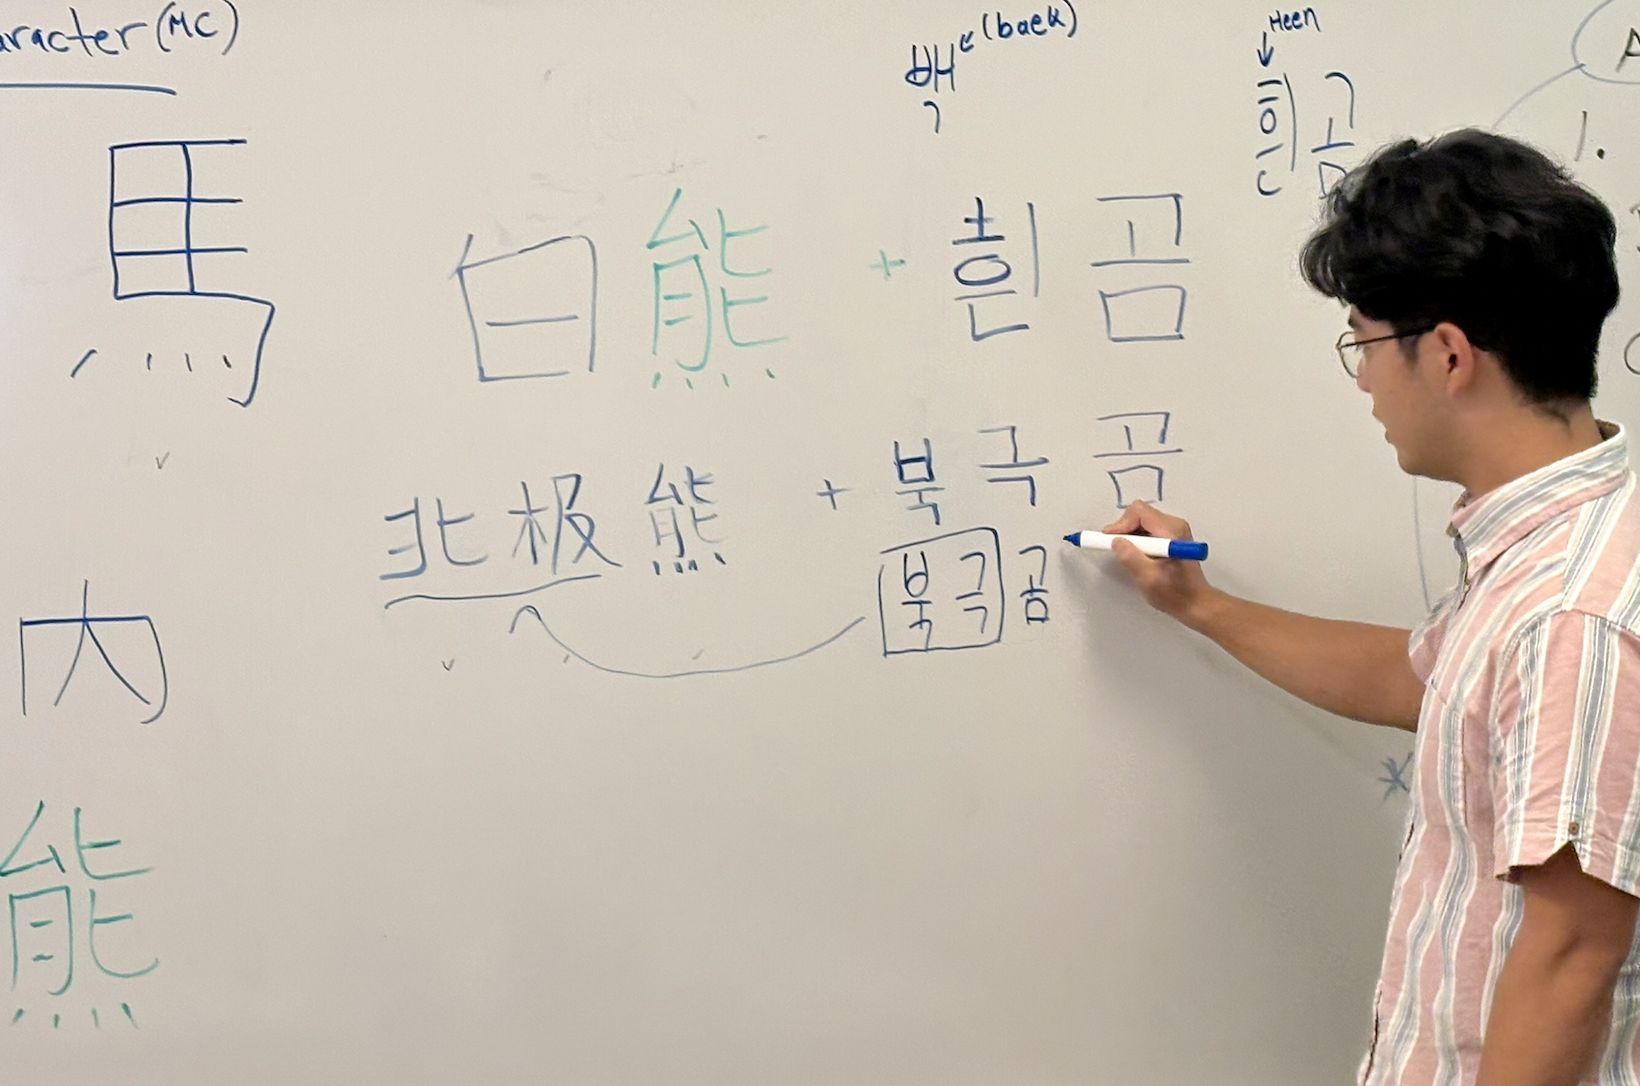 aracter (MC)
백 (baek)
Heen
흰곰
A
1.
馬
白熊 + 흰곰
北极熊 + 북극곰
북극곰
内
熊